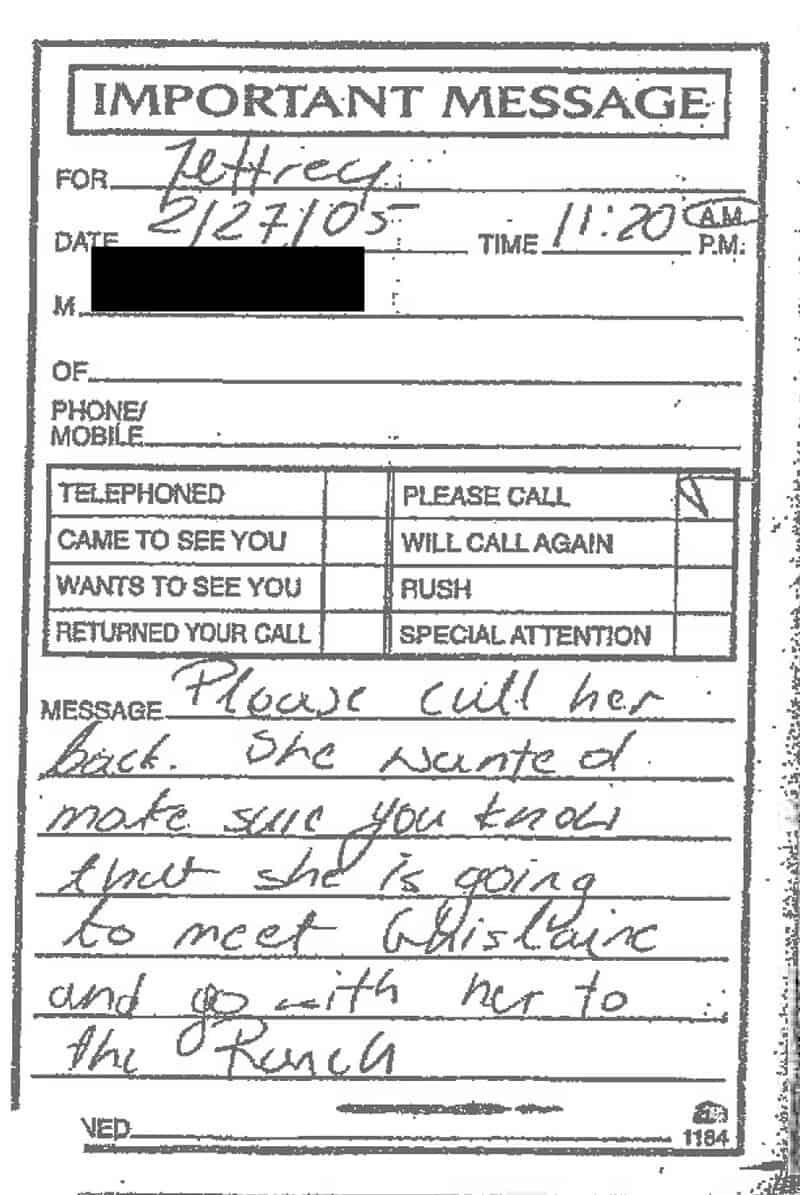 IMPORTANT MESSAGE
FOR Jeffrey
DATE 2/27/05 TIME 11:20 A.M.
P.M.
M.
OF
PHONE/
MOBILE
TELEPHONED PLEASE CALL
CAME TO SEE YOU WILL CALL AGAIN
WANTS TO SEE YOU RUSH
RETURNED YOUR CALL SPECIAL ATTENTION
MESSAGE Please call her
back. She wanted
make sure you know
that she is going
to meet Ghislaine
and go with her to
the Ranch
NED 1184